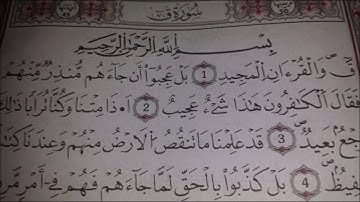 سُورَةُ قٓ
بِسْمِ ٱللَّهِ ٱلرَّحْمَٰنِ ٱلرَّحِيمِ
قٓ وَٱلْقُرْءَانِ ٱلْمَجِيدِ 1 بَلْ عَجِبُوٓا۟ أَن جَآءَهُم مُّنذِرٌ مِّنْهُمْ
فَقَالَ ٱلْكَٰفِرُونَ هَٰذَا شَىْءٌ عَجِيبٌ 2 أَءِذَا مِتْنَا وَكُنَّا تُرَابًا ذَٰلِكَ
رَجْعٌۢ بَعِيدٌ 3 قَدْ عَلِمْنَا مَا تَنقُصُ ٱلْأَرْضُ مِنْهُمْ وَعِندَنَا
حَفِيظٌۢ 4 بَلْ كَذَّبُوا۟ بِٱلْحَقِّ لَمَّا جَآءَهُمْ فَهُمْ فِىٓ أَمْرٍ